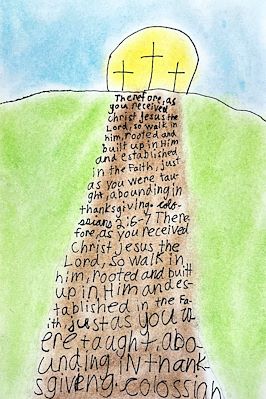 Therefore, as
you received
Christ Jesus the
Lord, so walk in
him, rooted and
built up in Him
and established
in the Faith, just
as you were tau-
ght, abounding in
thanksgiving. colo-
ssians 2:6-7 There
fore, as you received
Christ, Jesus the
Lord, so walk in
him, rooted and built
up in Him and es-
tablished in the Fa-
ith, just as you w
ere taught, abo-
unding in thank-
sgiving. colossian